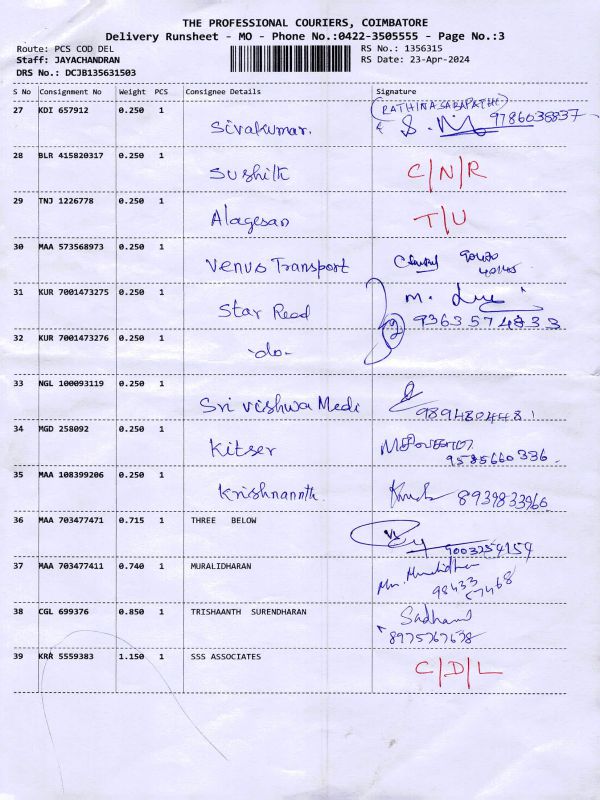 THE PROFESSIONAL COURIERS, COIMBATORE
Delivery Runsheet - MO - Phone No.:0422-3505555 - Page No.:3
Route: PCS COD DEL RS No.: 1356315
Staff: JAYACHANDRAN RS Date: 23-Apr-2024
DRS No.: DCJB135631503
S No Consignment No Weight PCS Consignee Details Signature
27 KDI 657912 0.250 1 Sivakumar. RATHINASABAPATHI 9786038837
28 BLR 415820317 0.250 1 Sushith C/N/R
29 TNJ 1226778 0.250 1 Alagesan T/U
30 MAA 573568973 0.250 1 Venus Transport
31 KUR 7001473275 0.250 1 Star Read M.
9363574833
32 KUR 7001473276 0.250 1 -do- 2
33 NGL 100093119 0.250 1 Sri Vishwa Medi 9894804481
34 MGD 258092 0.250 1 Kitser
9585660336
35 MAA 108399206 0.250 1 Krishnannth. 8939833966
36 MAA 703477471 0.715 1 THREE BELOW
9003254154
37 MAA 703477411 0.740 1 MURALIDHARAN Mr. Muralidhar
98433
57468
38 CGL 699376 0.850 1 TRISHAANTH SURENDHARAN Sadhana
8975767678
39 KRR 5559383 1.150 1 SSS ASSOCIATES C/D/L